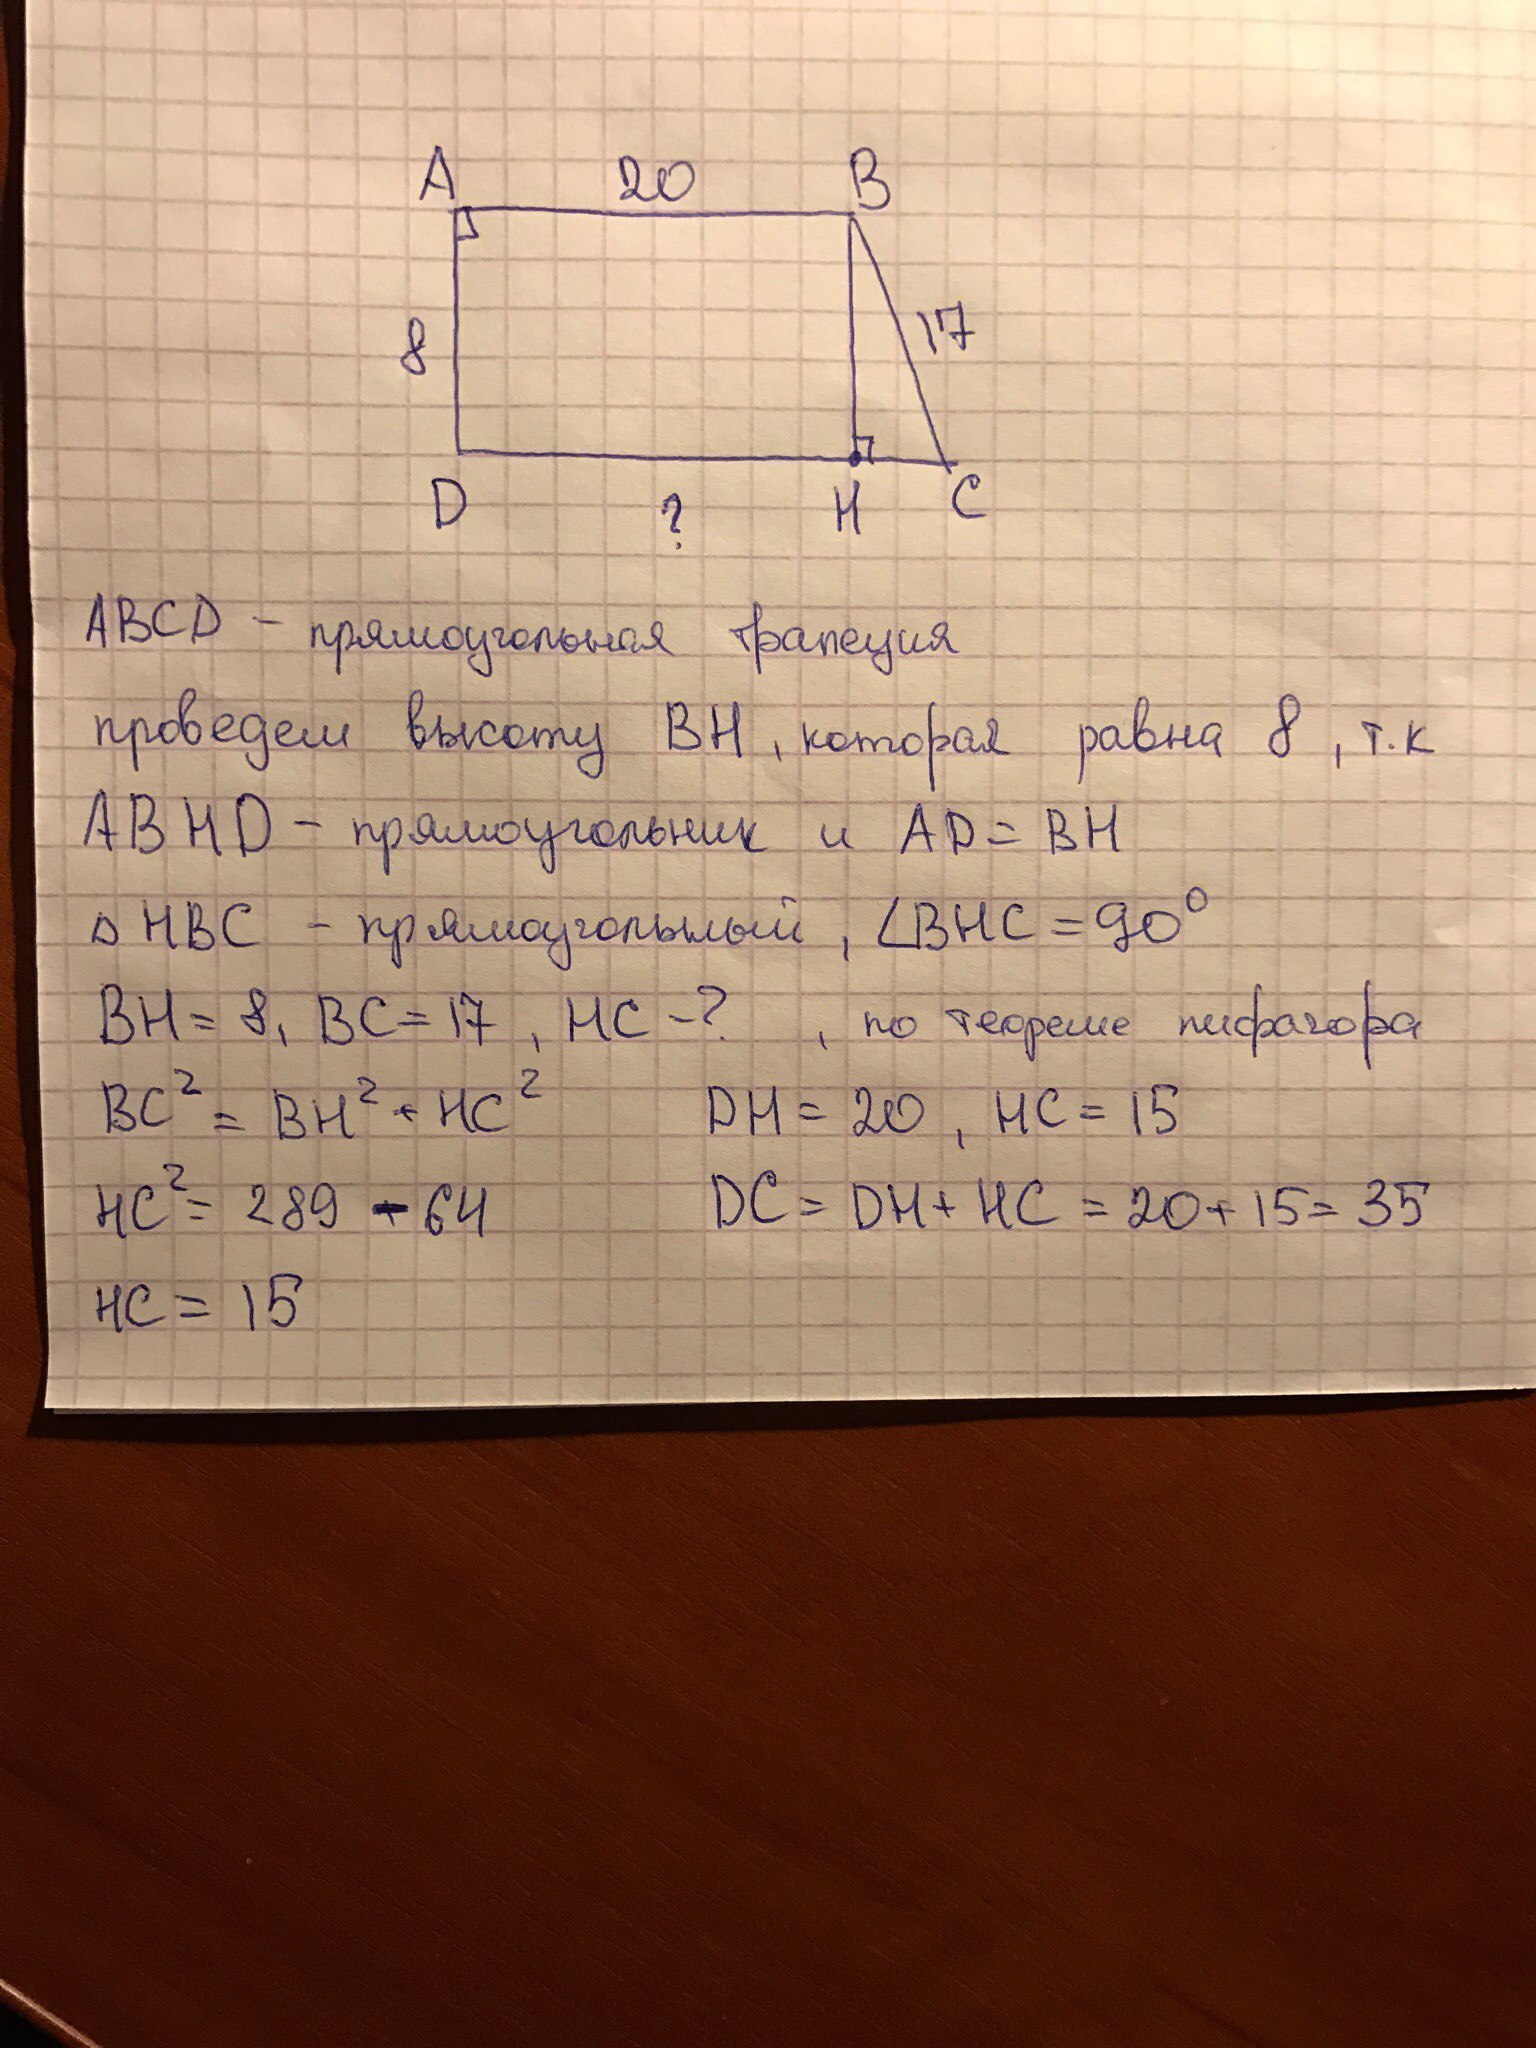 A 20 B
8 17
D ? H C
ABCD - прямоугольная трапеция
проведем высоту BH, которая равна 8, т.к
ABHD - прямоугольник и AD = BH
△HBC - прямоугольный, ∠BHC = 90⁰
BH = 8, BC = 17, HC - ? , по теореме пифагора
BC² = BH² + HC² DH = 20, HC = 15
HC² = 289 - 64 DC = DH + HC = 20 + 15 = 35
HC = 15